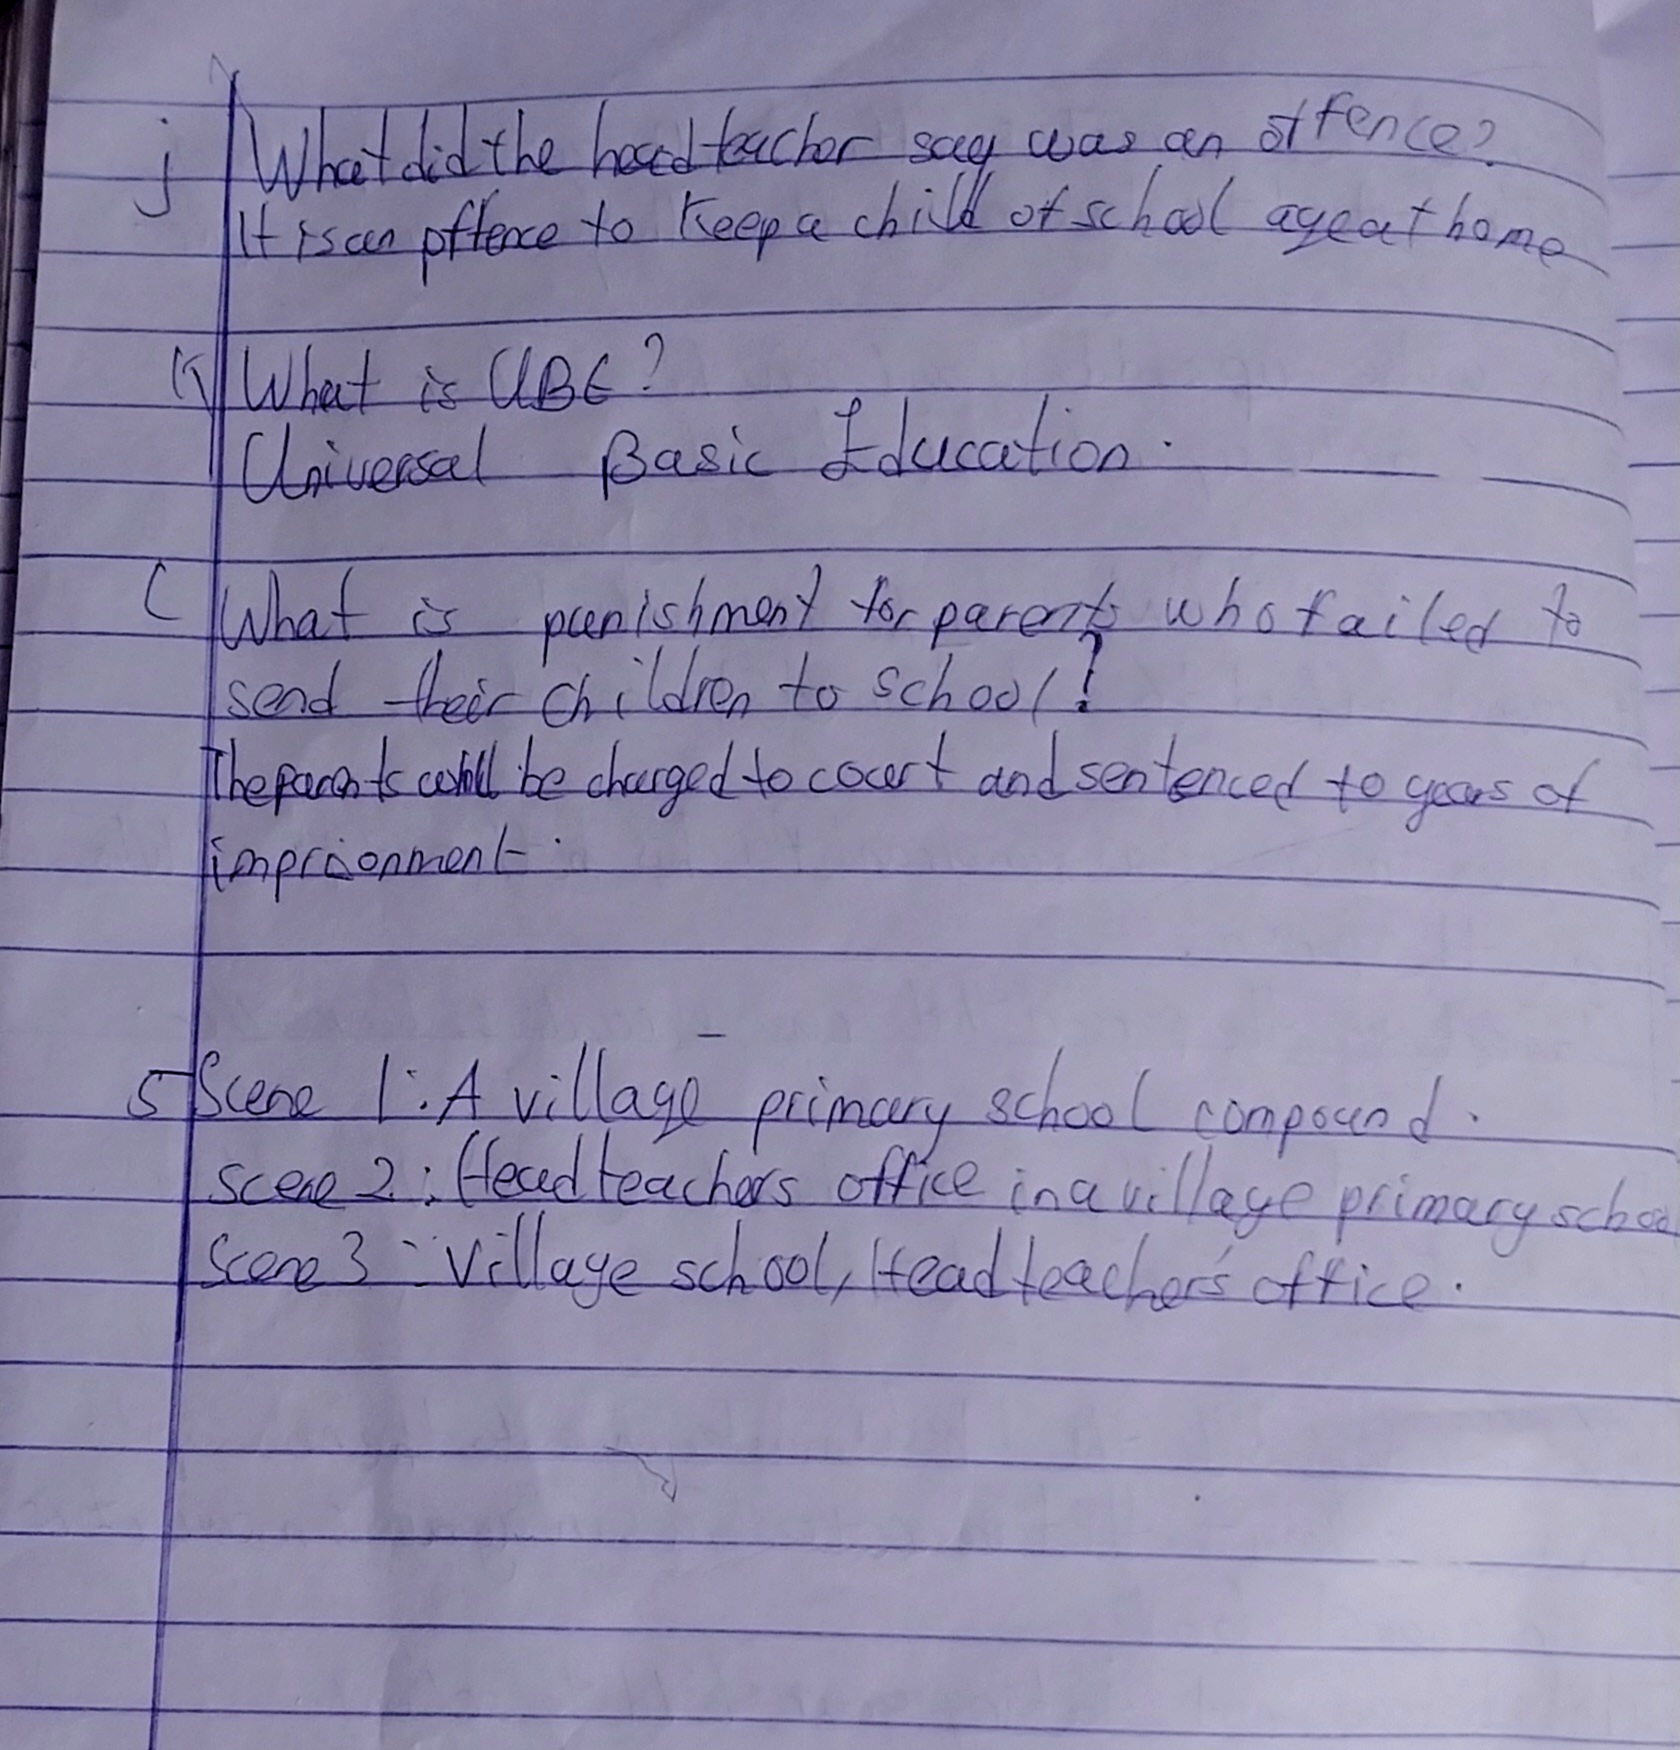 j What did the head teacher say was an offence?
It is an offence to keep a child of school age at home
K What is UBE?
Universal Basic Education.
L What is punishment for parents who failed to
send their children to school?
The parents will be charged to court and sentenced to years of
impriionment.
5 Scene 1: A village primary school compound.
Scene 2: Head teachers office in a village primary school
Scene 3: Village school, Head teacher's office.